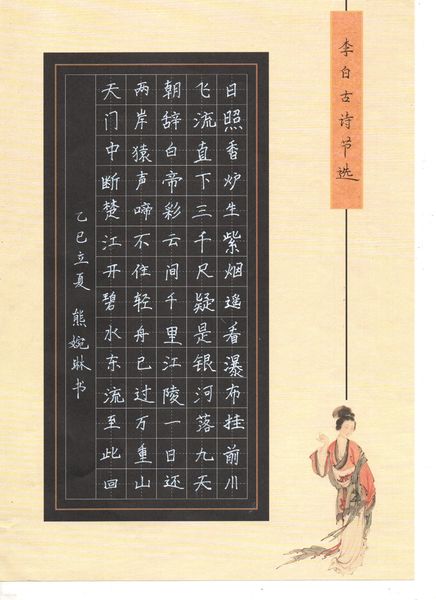 李白古诗节选
日照香炉生紫烟遥看瀑布挂前川
飞流直下三千尺疑是银河落九天
朝辞白帝彩云间千里江陵一日还
两岸猿声啼不住轻舟已过万重山
天门中断楚江开碧水东流至此回
乙巳立夏 熊婉琳书